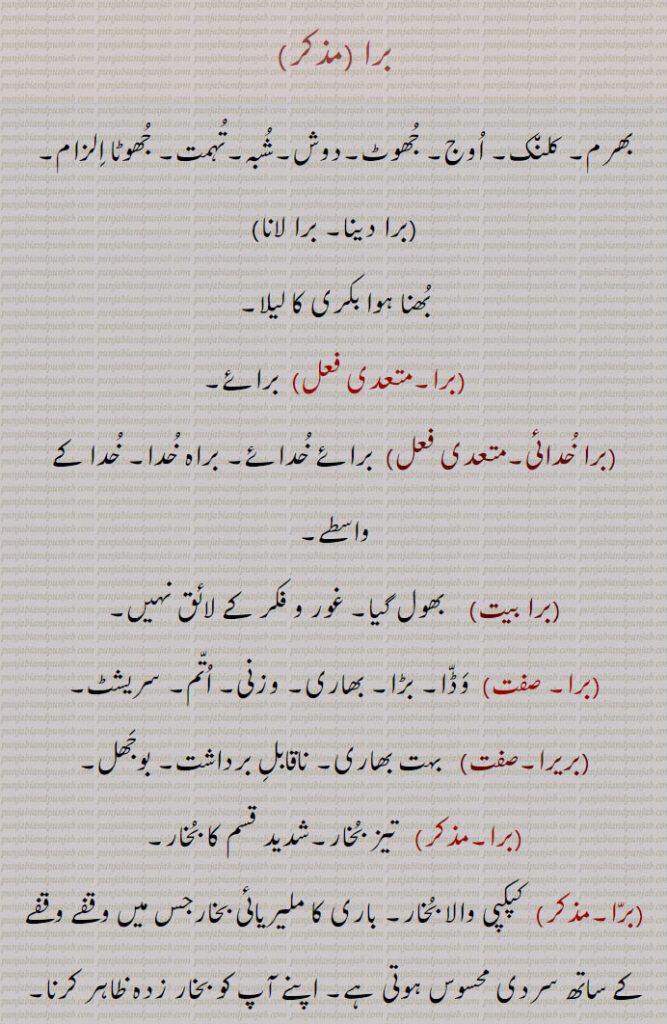 برا (مذکر)
بھرم۔ کلنّک۔ اُوج۔ جُھوٹ۔ دوش۔ شُبہ۔ تُہمت۔ جُھوٹا اِلزام۔
(برا دینا۔ برا لانا)
بُھنا ہوا بکری کا لیلا۔
(برا۔ متعدی فعل) برائے۔
(برا خُدائی۔ متعدی فعل) برائے خُدائے۔ براہ خُدا۔ خُدا کے
واسطے۔
(برا بیت) بھول گیا۔ غور و فکر کے لائق نہیں۔
(برا۔ صفت) وَڈّا۔ بڑا۔ بھاری۔ وزنی۔ اُتّم۔ سریشٹ۔
(بریرا۔ صفت) بہت بھاری۔ ناقابلِ برداشت۔ بوجَھل۔
(برا۔ مذکر) تیز بُخار۔ شدید قسم کا بُخار۔
(برّا۔ مذکر) کپکپی والا بُخار۔ باری کا ملیریائی بخار جس میں وقفے وقفے
کے ساتھ سردی محسوس ہوتی ہے۔ اپنے آپ کو بخار زدہ ظاہر کرنا۔